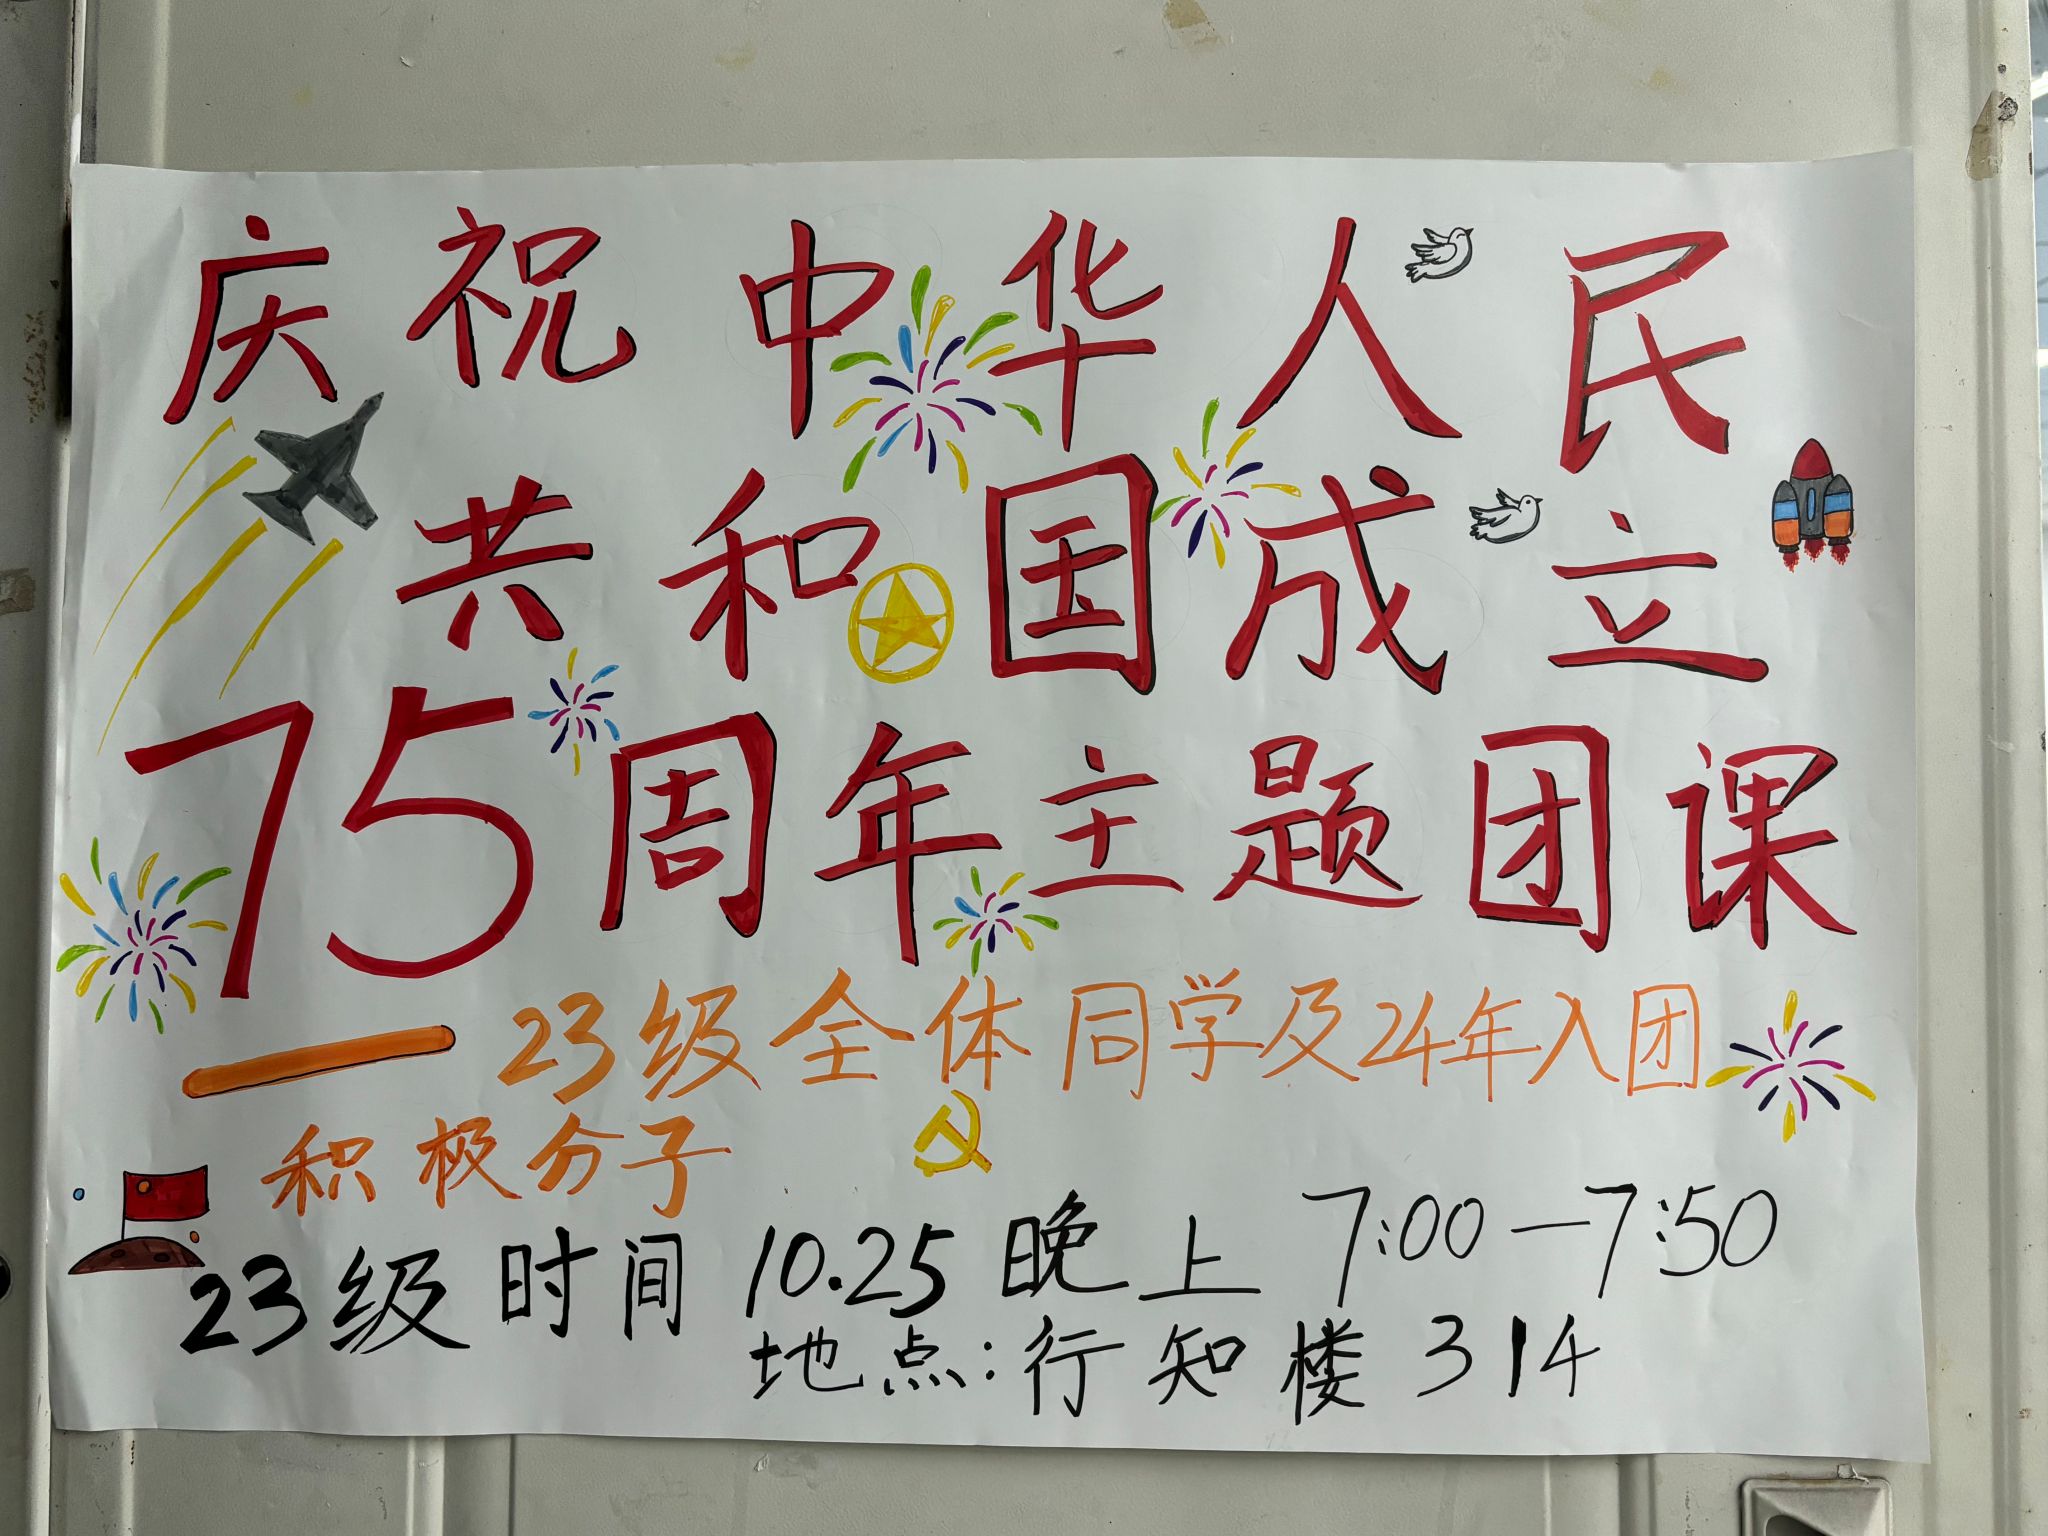 庆祝中华人民
共和国成立
75周年主题团课
—23级全体同学及24年入团
积极分子
23级时间 10.25晚上 7:00—7:50
地点:行知楼314